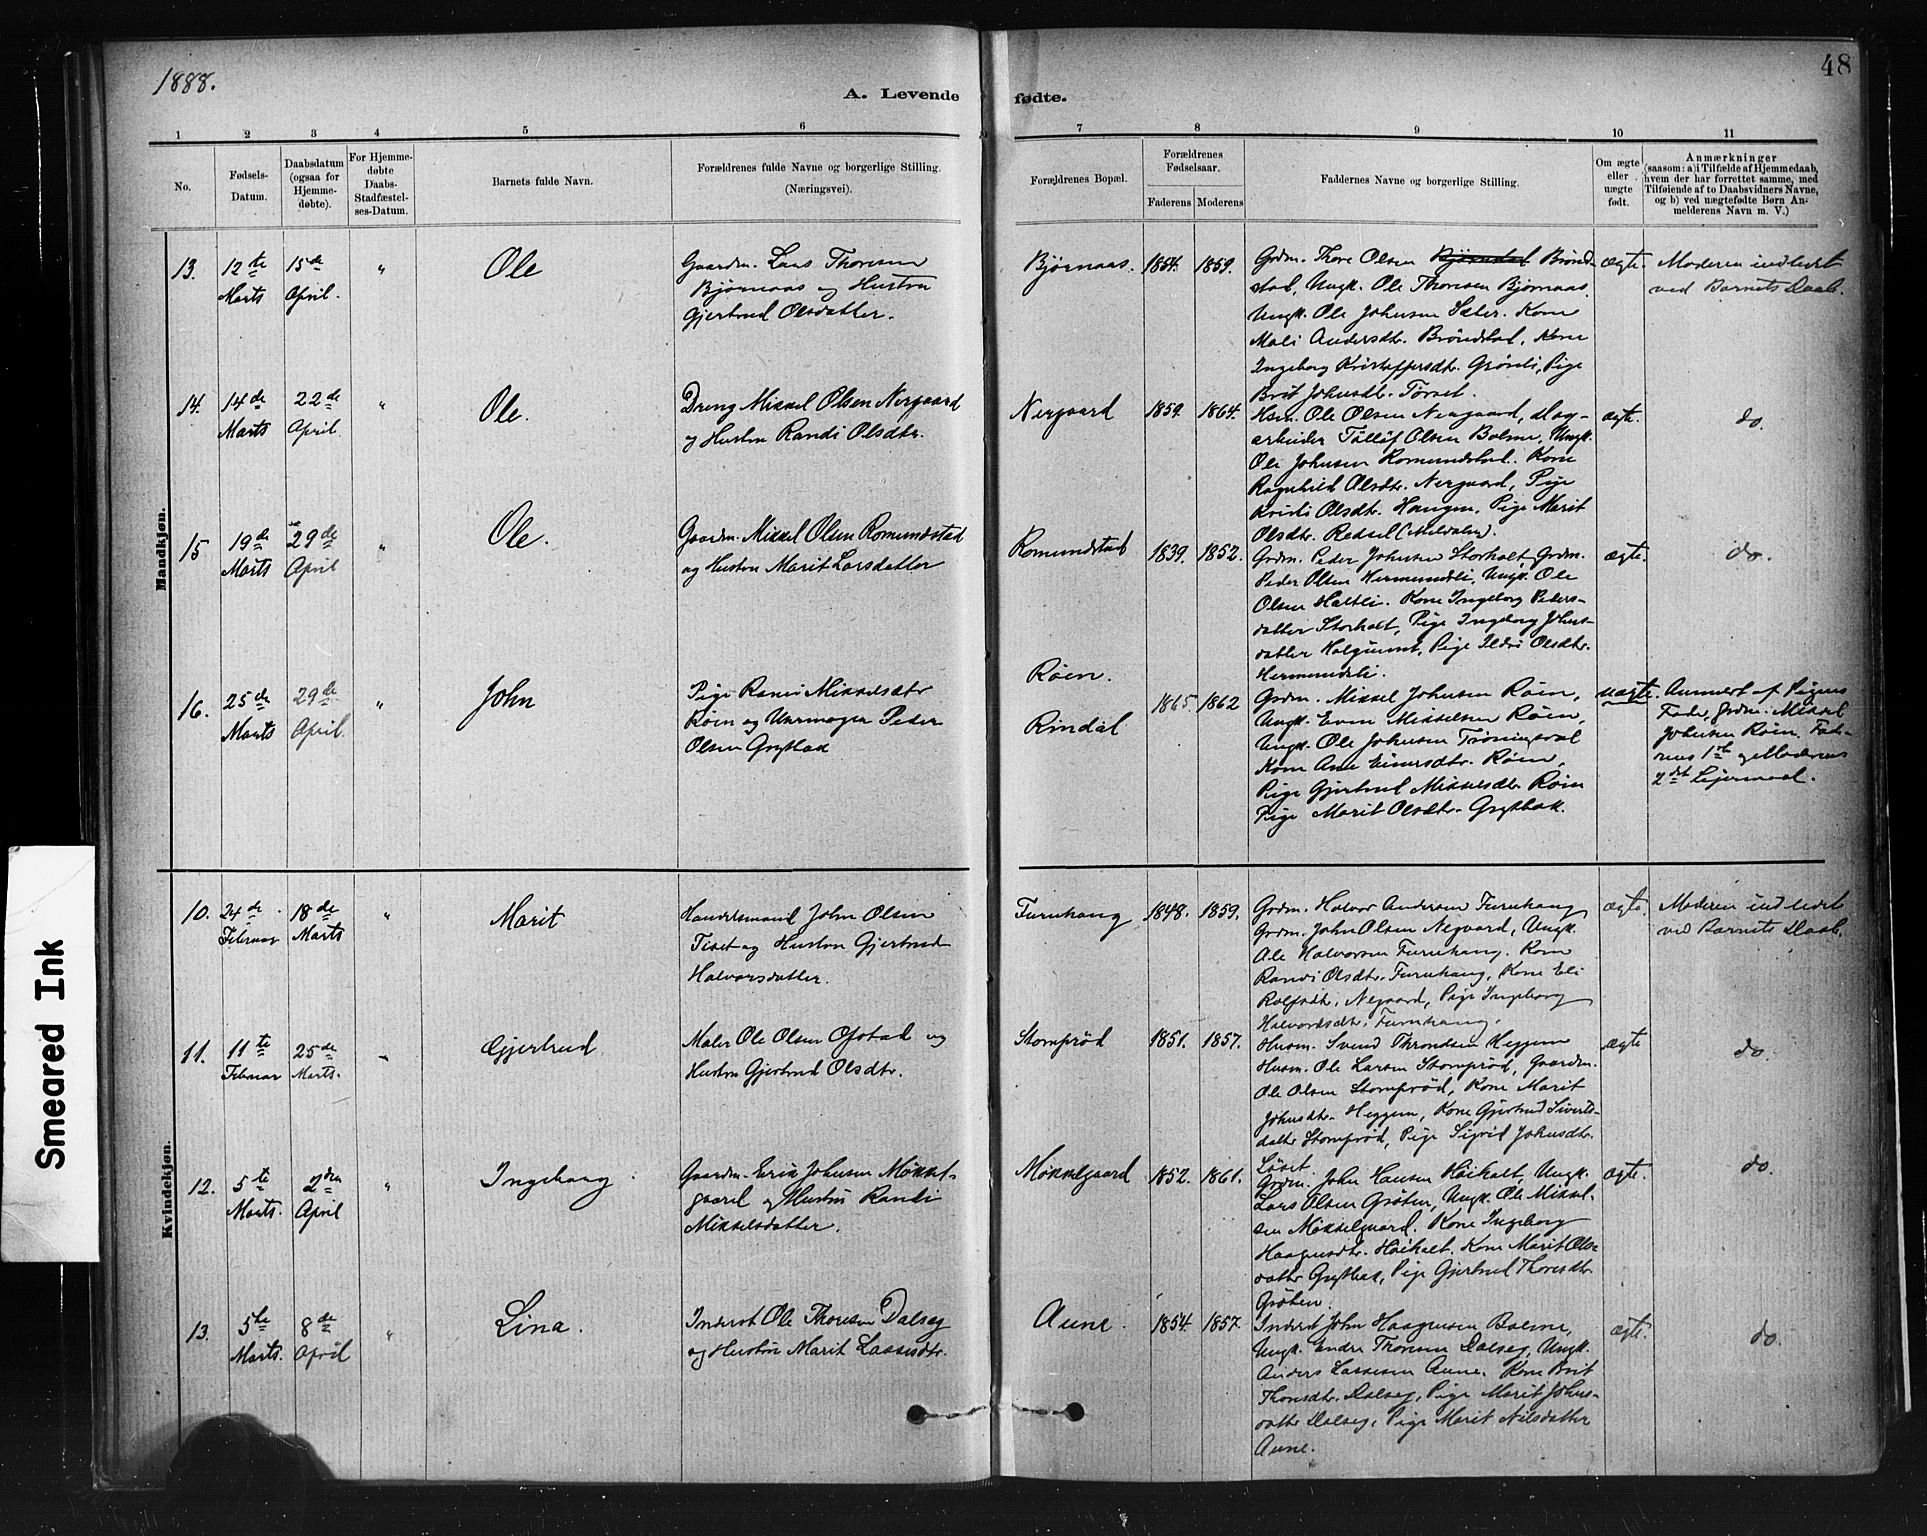 1888.
48
A. Levende fødte.
1 2 3 4 5 6 7 8 9 10 11
No.
Fødsels-
Datum.
Daabsdatum
(ogsaa for
Hjemme-
døbte).
For Hjemme-
døbte
Daabs-
Stadfæstel-
ses-Datum.
Barnets fulde Navn.
Forældrenes fulde Navne og borgerlige Stilling.
(Næringsvei).
Forældrenes Bopæl.
Forældrenes
Fødselsaar.
Faderens Moderens
Faddernes Navne og borgerlige Stilling.
Om ægte
eller
uægte
født.
Anmærkninger
(saasom: a) i Tilfælde af Hjemmedaab,
hvem der har forrettet samme, med
Tilføiende af to Daabsvidners Navne,
og b) ved uægtefødte Børn An-
melderens Navn m. V.)
Mandkjøn.
13.
12te
Marts
15de
April.
"
Ole
Gaardm. Lars Thoresen
Bjørnaas og Hustru
Gjertrud Olsdatter.
Bjørnaas.
1854.
1859.
Grdm. Thore Olsen Bjørnstad Brønd-
stad, Ungk. Ole Thoresen Bjørnaas
Ungk. Ole Johnsen Sæter. Kone
Mali Andersdtr. Brøndstad, Kone
Ingeborg Kristoffersdtr. Grønli, Pige
Brit Johnsdtr. Tørset.
ægte.
Moderen indledet
ved Barnets Daab.
14.
14de
Marts
22de
April
"
Ole.
Dreng Mikkel Olsen Nergaard
og Hustru Randi Olsdtr.
Nergaard
1859.
1864.
Hsm. Ole Olsen Nergaard, Dag-
arbeider Tølløf Olsen Bolme, Ungk.
Ole Johnsen Romundstad. Kone
Ragnhild Olsdtr. Nergaard, Pige
Kristi Olsdtr. Haugen, Pige Marit
Olsdtr. Redsel (Meldalen).
ægte.
do.
15
19de
Marts
29de
April
"
Ole.
Gaardm. Mikkel Olsen Romundstad
og Hustru Marit Larsdatter
Romundstad
1839.
1852.
Grdm. Peder Johnsen Storholt, Grdm.
Peder Olsen Hermundsli, Ungk. Ole
Olsen Holtli. Kone Ingeborg Peders-
datter Storholt, Pige Ingeborg Johns-
datter Halgunset, Pige Ildri Olsdtr.
Hermundsli.
ægte.
do.
16.
25de
Marts
29de
April
"
John
Pige Randi Mikkelsdtr
Røen og Urmager Peder
Olsen Grytbak
Røen.
Rindal
1865.
1862
Grdm. Mikkel Johnsen Røen,
Ungk. Even Mikkelsen Røen,
Ungk. Ole Johnsen Trøningsdal
Kone Ane Einersdtr. Røen,
Pige Gjertrud Mikkelsdtr. Røen
Pige Marit Olsdtr. Grytbak.
uægte.
Anmeldt af Pigens
Fader, Grdm. Mikkel
Johnsen Røen. Fade-
rens 1ste og Moderens
2det Leiermaal.
Kvindekjøn.
10.
24de
Februar
18de
Marts
"
Marit
Handelsmand John Olsen
Tiset og Hustru Gjertrud
Halvorsdatter.
Furuhaug
1848.
1859.
Grdm. Halvor Andersen Furuhaug
Grdm. John Olsen Negaard, Ungk.
Ole Halvorsen Furuhaug. Kone
Randi Olsdtr. Furuhaug, Kone Eli
Rolfsdtr. Negaard, Pige Ingeborg
Halvordsdtr. Furuhaug.
ægte.
Moderen indledet
ved Barnets Daab.
11.
11te
Februar
25de
Marts.
"
Gjertrud
Maler Ole Olsen Opstad og
Hustru Gjertrud Olsdtr.
Stomprød
1851.
1857.
Husm. Svend Throndsen Heggem
Husm. Ole Larsen Stomprød, Gaardm.
Ole Olsen Stomprød, Kone Marit
Johnsdtr. Heggem, Kone Gjertrud Siverts-
datter Stomprød, Pige Sigrid Johnsdtr.
Løset.
ægte
do.
12.
5te
Marts.
2den
April
"
Ingeborg
Gaardm. Erik Johnsen Møkkel-
gaard og Hustru Randi
Mikkelsdatter.
Møkkelgaard
1852.
1861.
Grdm. John Hansen Høiholt, Ungk.
Lars Olsen Grøten, Ungk. Ole Mikkel-
sen Møkkelgaard. Kone Ingeborg
Haagensdtr. Høiholt. Kone Marit Ols-
datter Grytbak, Pige Gjertrud Thoresdtr.
Grøten.
ægte.
do.
13.
5te
Marts.
8de
April
"
Lina.
Inderst Ole Thoresen Dalseg
og Hustru Marit Lassesdtr.
Aune.
1854.
1857.
Inderst John Haagensen Bolme,
Ungk. Endre Thoresen Dalseg, Ungk.
Anders Lassesen Aune. Kone Brit
Thoresdtr. Dalseg, Pige Marit Johns-
datter Dalseg, Pige Marit Nilsdatter
Aune.
ægte.
do.
Smeared Ink